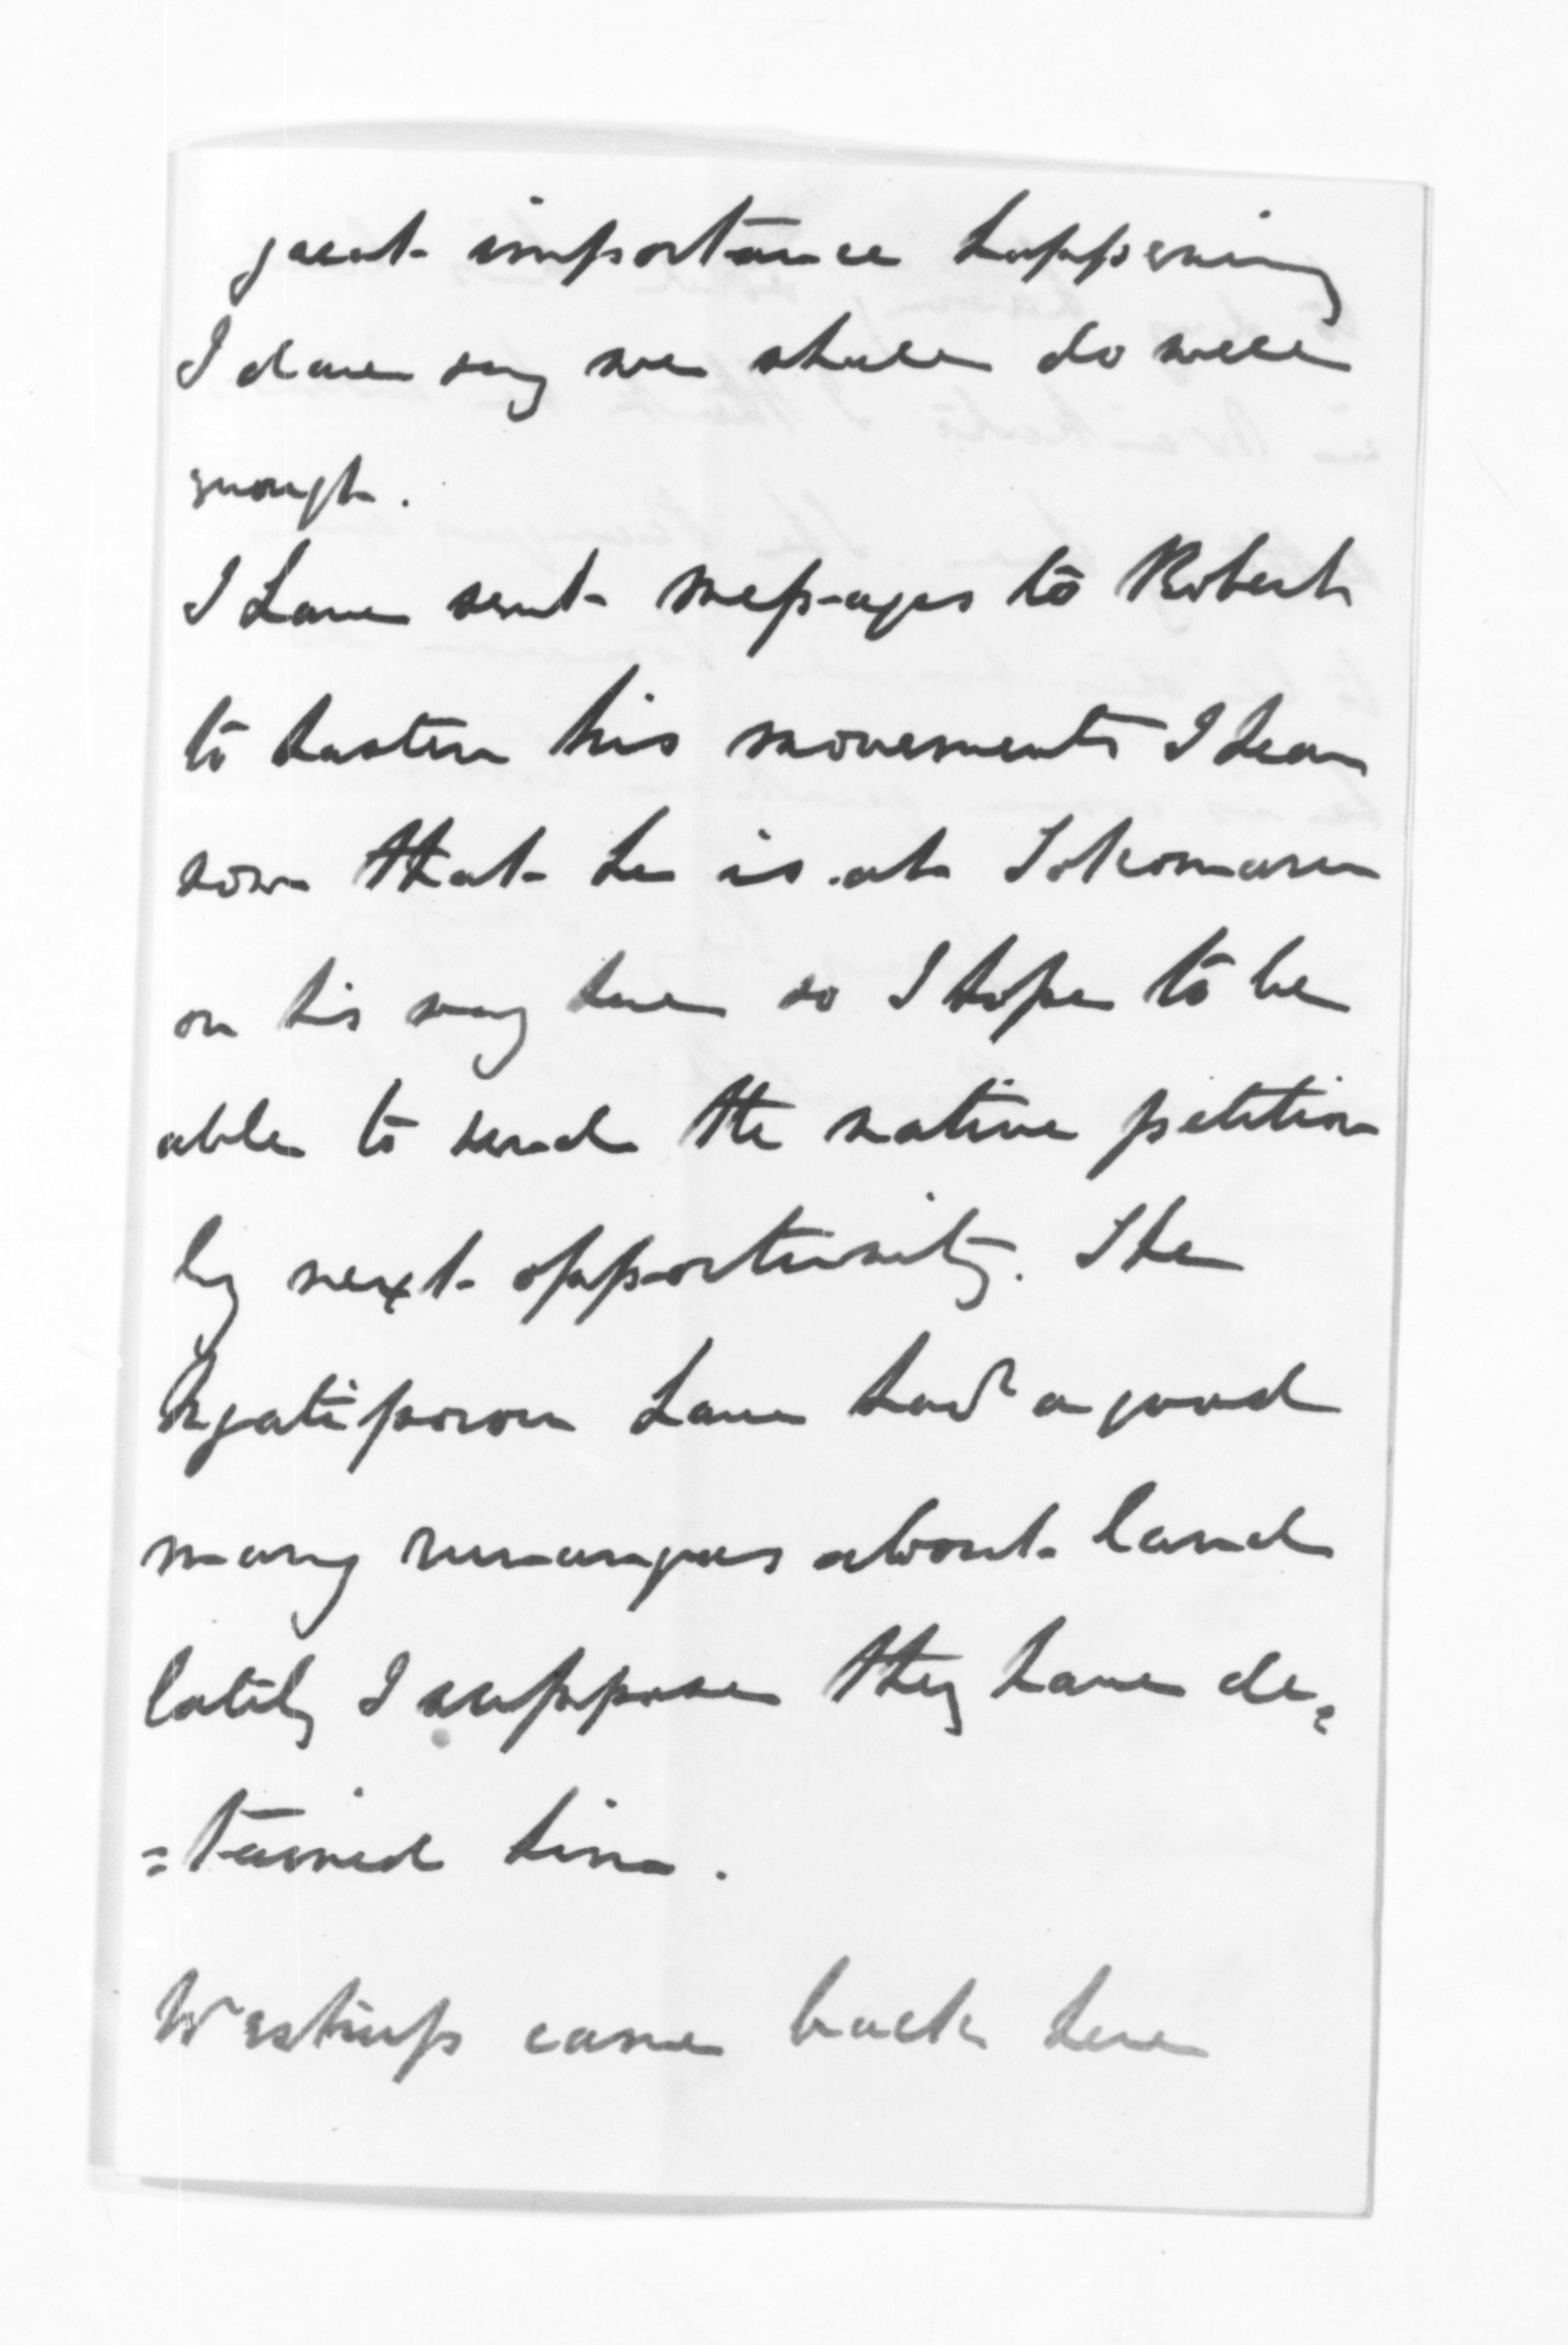 great importance happening
I dare say we shall do well
enough.
I have sent messages to Robert
to hasten his movements I hear
now that he is at Tokomaru
on his way here so I hope to be
able to send the native petition
by next opportunity. The
Ngatiporou have had a good
many runangas about land
lately I suppose they have de=
=tained him.
Westrup came back here